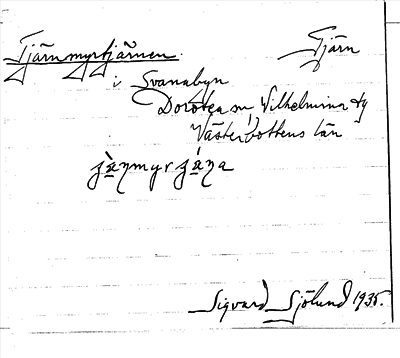 Tjärnmyrtjärnen. Tjärn
i Svanabyn
Dorotea sn, Vilhelmina tg
Västerbottens län
Sigvard Sjölund 1935.